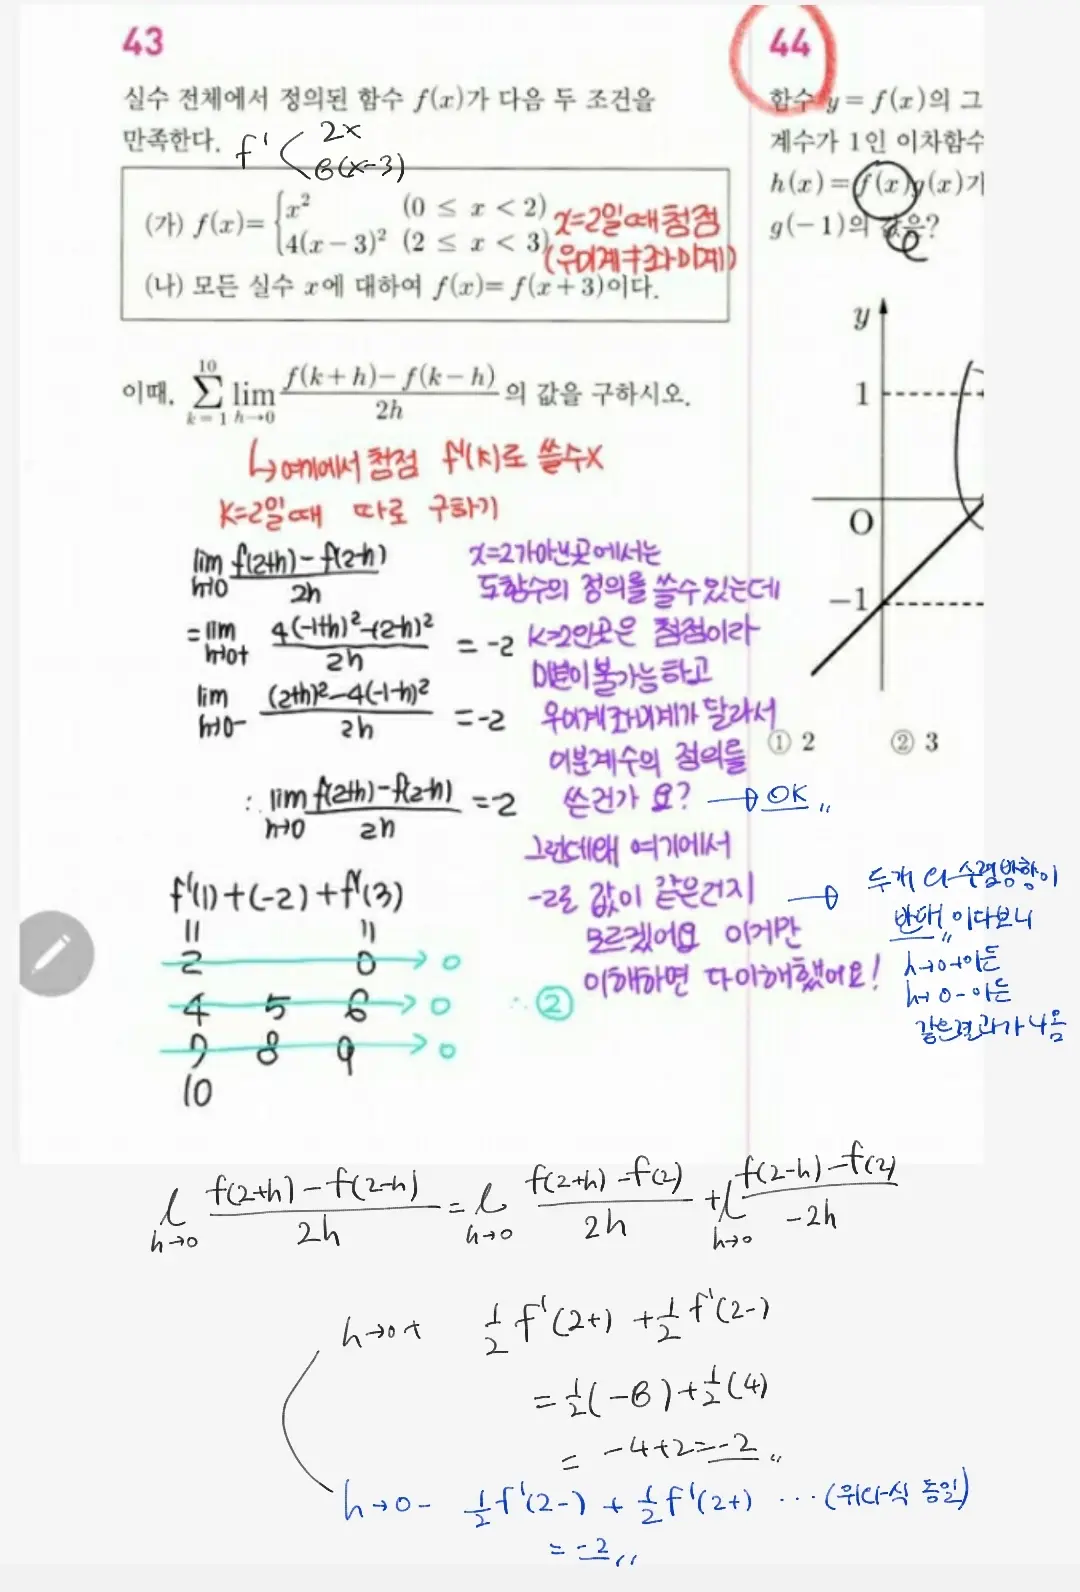 43
실수 전체에서 정의된 함수 f(x)가 다음 두 조건을
만족한다.
f' < 2x
8(x-3)
(가) f(x)= { x² (0 ≤ x < 2)
4(x-3)² (2 ≤ x < 3)
x=2일때 첨점
(우미계≠좌미계)
(나) 모든 실수 x에 대하여 f(x)=f(x+3)이다.
이때, \sum_{k=1}^{10} \lim_{h→0} \frac{f(k+h)-f(k-h)}{2h} 의 값을 구하시오.
↳여기에서 첨점 f'(k)로 쓸수X
K=2일때 따로 구하기
lim h→0 \frac{f(2+h)-f(2-h)}{2h}
= lim h→0+ \frac{4(-1+h)²-(2-h)²}{2h} = -2
lim h→0- \frac{(2+h)²-4(-1-h)²}{2h} = -2
∴ lim h→0 \frac{f(2+h)-f(2-h)}{2h} = -2
f'(1)+(-2)+f'(3)
11 11
2 0 → 0
4 5 6 → 0
7 8 9 → 0
10
∴ ②
x=2가아닌곳에서는
도함수의 정의를 쓸수있는데
K=2인곳은 첨점이라
미분이불가능하고
우미계좌미계가 달라서
미분계수의 정의를
쓴건가 요? → OK 〃
그런데왜 여기에서
-2로 값이 같은건지
모르겠어요 이거만
이해하면 다이해했어요!
→ 두개 다 수렴방향이
반대〃이다보니
h→0+이든
h→0-이든
같은결과가 나옴
44
함수 y=f(x)의 그
계수가 1인 이차함수
h(x)=f(x)g(x)가
g(-1)의 값은?
y
1
O
-1
① 2 ② 3
l h→0 \frac{f(2+h)-f(2-h)}{2h} = l h→0 \frac{f(2+h)-f(2)}{2h} + l h→0 \frac{f(2-h)-f(2)}{-2h}
h→0+ \frac{1}{2}f'(2+)+\frac{1}{2}f'(2-)
=\frac{1}{2}(-8)+\frac{1}{2}(4)
= -4+2=-2〃
h→0- \frac{1}{2}f'(2-)+\frac{1}{2}f'(2+) ···(위다식 동일)
= -2〃